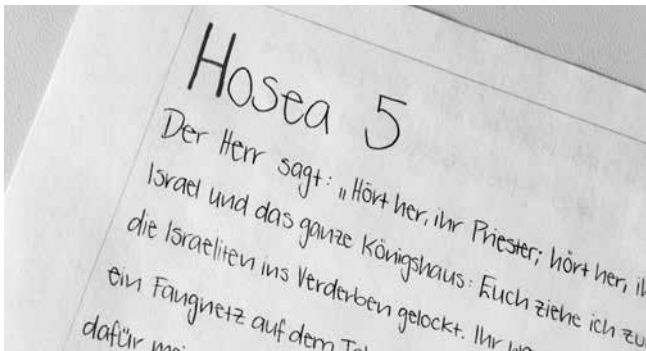 Hosea 5
Der Herr sagt: „Hört her, ihr Priester; hört her,
Israel und das ganze Königshaus: Euch ziehe ich
die Israeliten ins Verderben gelockt. Ihr
ein Fangnetz auf dem
dafür